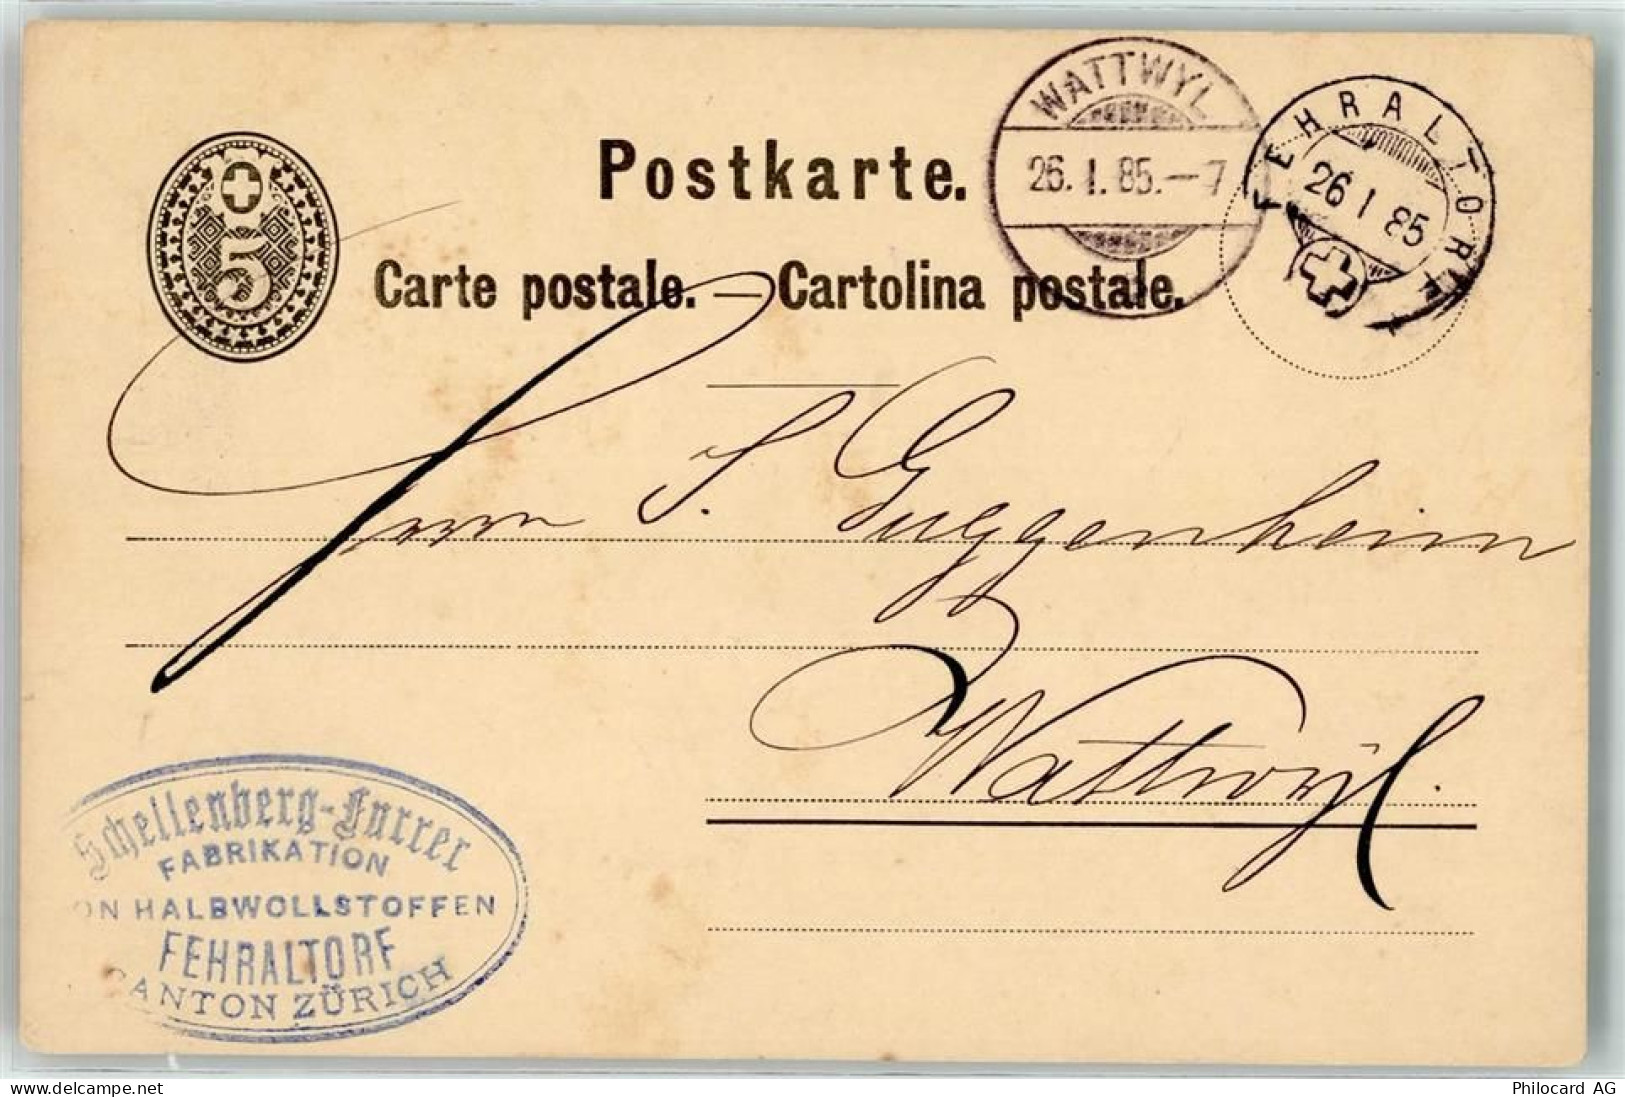 WATTWYL
26. I. 85. — 7
FEHRALTORF
26 I 85
5
Postkarte.
Carte postale. — Cartolina postale.
Herrn S. Guggenheim
Wattwyl.
Schellenberg-Furrer
FABRIKATION
ON HALBWOLLSTOFFEN
FEHRALTORF
CANTON ZÜRICH
www.delcampe.net
Philocard AG